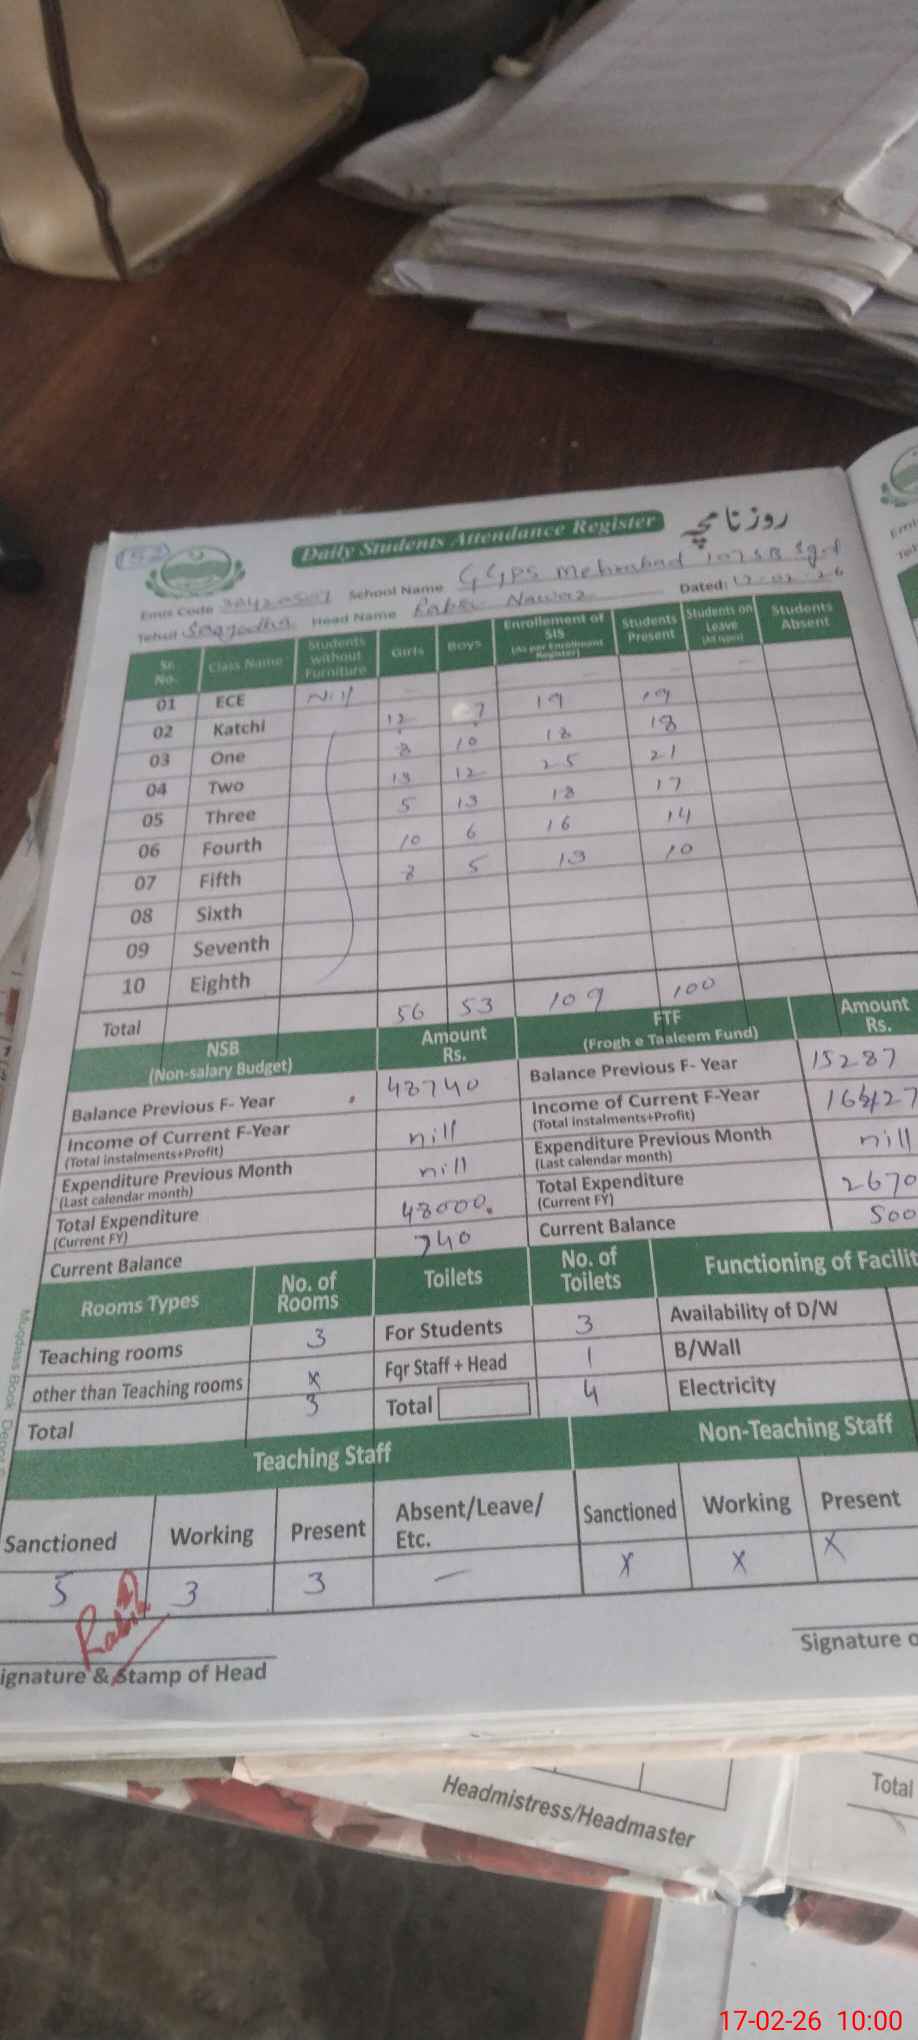 152
Daily Students Attendance Register روزنامچہ
Emis Code School Name GGPS Mehrabad 107 SB Sgd
Tehsil Sargodha Head Name Rabia Nawaz Dated: 17-02-26
Sr. No. Class Name Students without Furniture Girls Boys Enrollement of SIS (As per Enrollment Register) Students Present Students on Leave (All types) Students Absent
01 ECE Nill
02 Katchi 12 7 19 19
03 One 8 10 18 18
04 Two 13 12 25 21
05 Three 5 13 18 17
06 Fourth 10 6 16 14
07 Fifth 8 5 13 10
08 Sixth
09 Seventh
10 Eighth
Total 56 53 109 100
NSB (Non-salary Budget) Amount Rs. FTF (Frogh e Taaleem Fund) Amount Rs.
Balance Previous F- Year 48740 Balance Previous F- Year 15287
Income of Current F-Year (Total instalments+Profit) nill Income of Current F-Year (Total instalments+Profit)
Expenditure Previous Month (Last calendar month) nill Expenditure Previous Month (Last calendar month) nill
Total Expenditure (Current FY) 48000 Total Expenditure (Current FY) 2670
Current Balance 740 Current Balance 500
Rooms Types No. of Rooms Toilets No. of Toilets Functioning of Facilit
Teaching rooms 3 For Students 3 Availability of D/W
other than Teaching rooms x For Staff + Head 1 B/Wall
Total 3 Total 4 Electricity
Teaching Staff Non-Teaching Staff
Sanctioned Working Present Absent/Leave/ Etc. Sanctioned Working Present
5 3 3 — x x x
Rabia
ignature & Stamp of Head Signature o
Muqdass Book Depot
Headmistress/Headmaster
Total
17-02-26 10:00